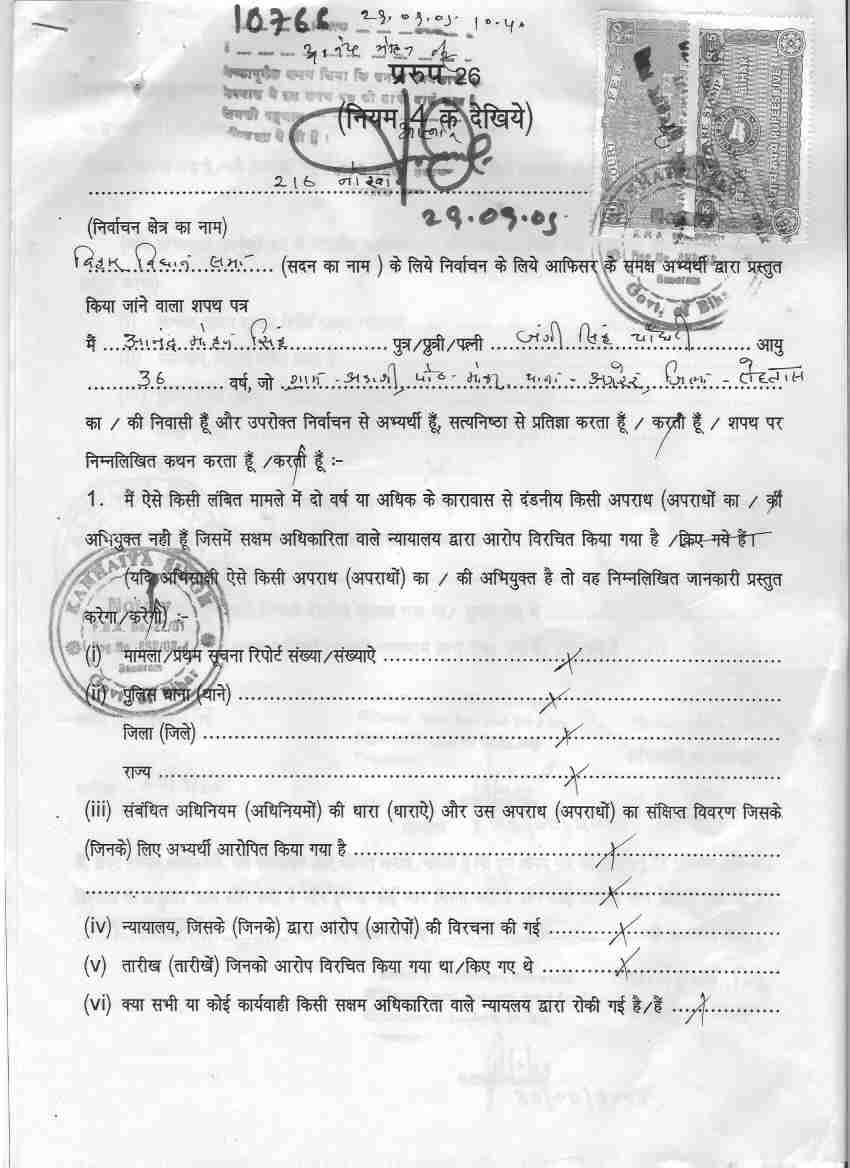 10766 29.09.05 10.40
प्ररुप 26
(नियम 4 के देखिये)
216 नोखा
29.09.05
(निर्वाचन क्षेत्र का नाम)
बिहार विधान सभा (सदन का नाम ) के लिये निर्वाचन के लिये आफिसर के समक्ष अभ्यर्थी द्वारा प्रस्तुत
किया जाने वाला शपथ पत्र
मैं आनंद मोहन सिंह पुत्र/पुत्री/पत्नी जंगी सिंह चौधरी आयु
36 वर्ष, जो ग्राम - पो०- थाना- अगरेर, जिला - रोहतास
का / की निवासी हूँ और उपरोक्त निर्वाचन से अभ्यर्थी हूँ, सत्यनिष्ठा से प्रतिज्ञा करता हूँ / करती हूँ / शपथ पर
निम्नलिखित कथन करता हूँ /करती हूँ :-
1. मैं ऐसे किसी लंबित मामले में दो वर्ष या अधिक के कारावास से दंडनीय किसी अपराध (अपराधों का / की
अभियुक्त नही हूँ जिसमें सक्षम अधिकारिता वाले न्यायालय द्वारा आरोप विरचित किया गया है /किए गये हैं।
(यदि अभिसाक्षी ऐसे किसी अपराध (अपराधों) का / की अभियुक्त है तो वह निम्नलिखित जानकारी प्रस्तुत
करेगा/करेगी) :-
KANHAIYA SINGH
Notary
Sasaram
Govt. of Bihar
(i) मामला/प्रथम सूचना रिपोर्ट संख्या/संख्याऐ
(ii) पुलिस थाना (थाने)
जिला (जिले)
राज्य
(iii) संबंधित अधिनियम (अधिनियमों) की धारा (धाराऐ) और उस अपराध (अपराधों) का संक्षिप्त विवरण जिसके
(जिनके) लिए अभ्यर्थी आरोपित किया गया है
(iv) न्यायालय, जिसके (जिनके) द्वारा आरोप (आरोपों) की विरचना की गई
(v) तारीख (तारीखें) जिनको आरोप विरचित किया गया था/किए गए थे
(vi) क्या सभी या कोई कार्यवाही किसी सक्षम अधिकारिता वाले न्यायलय द्वारा रोकी गई है/हैं